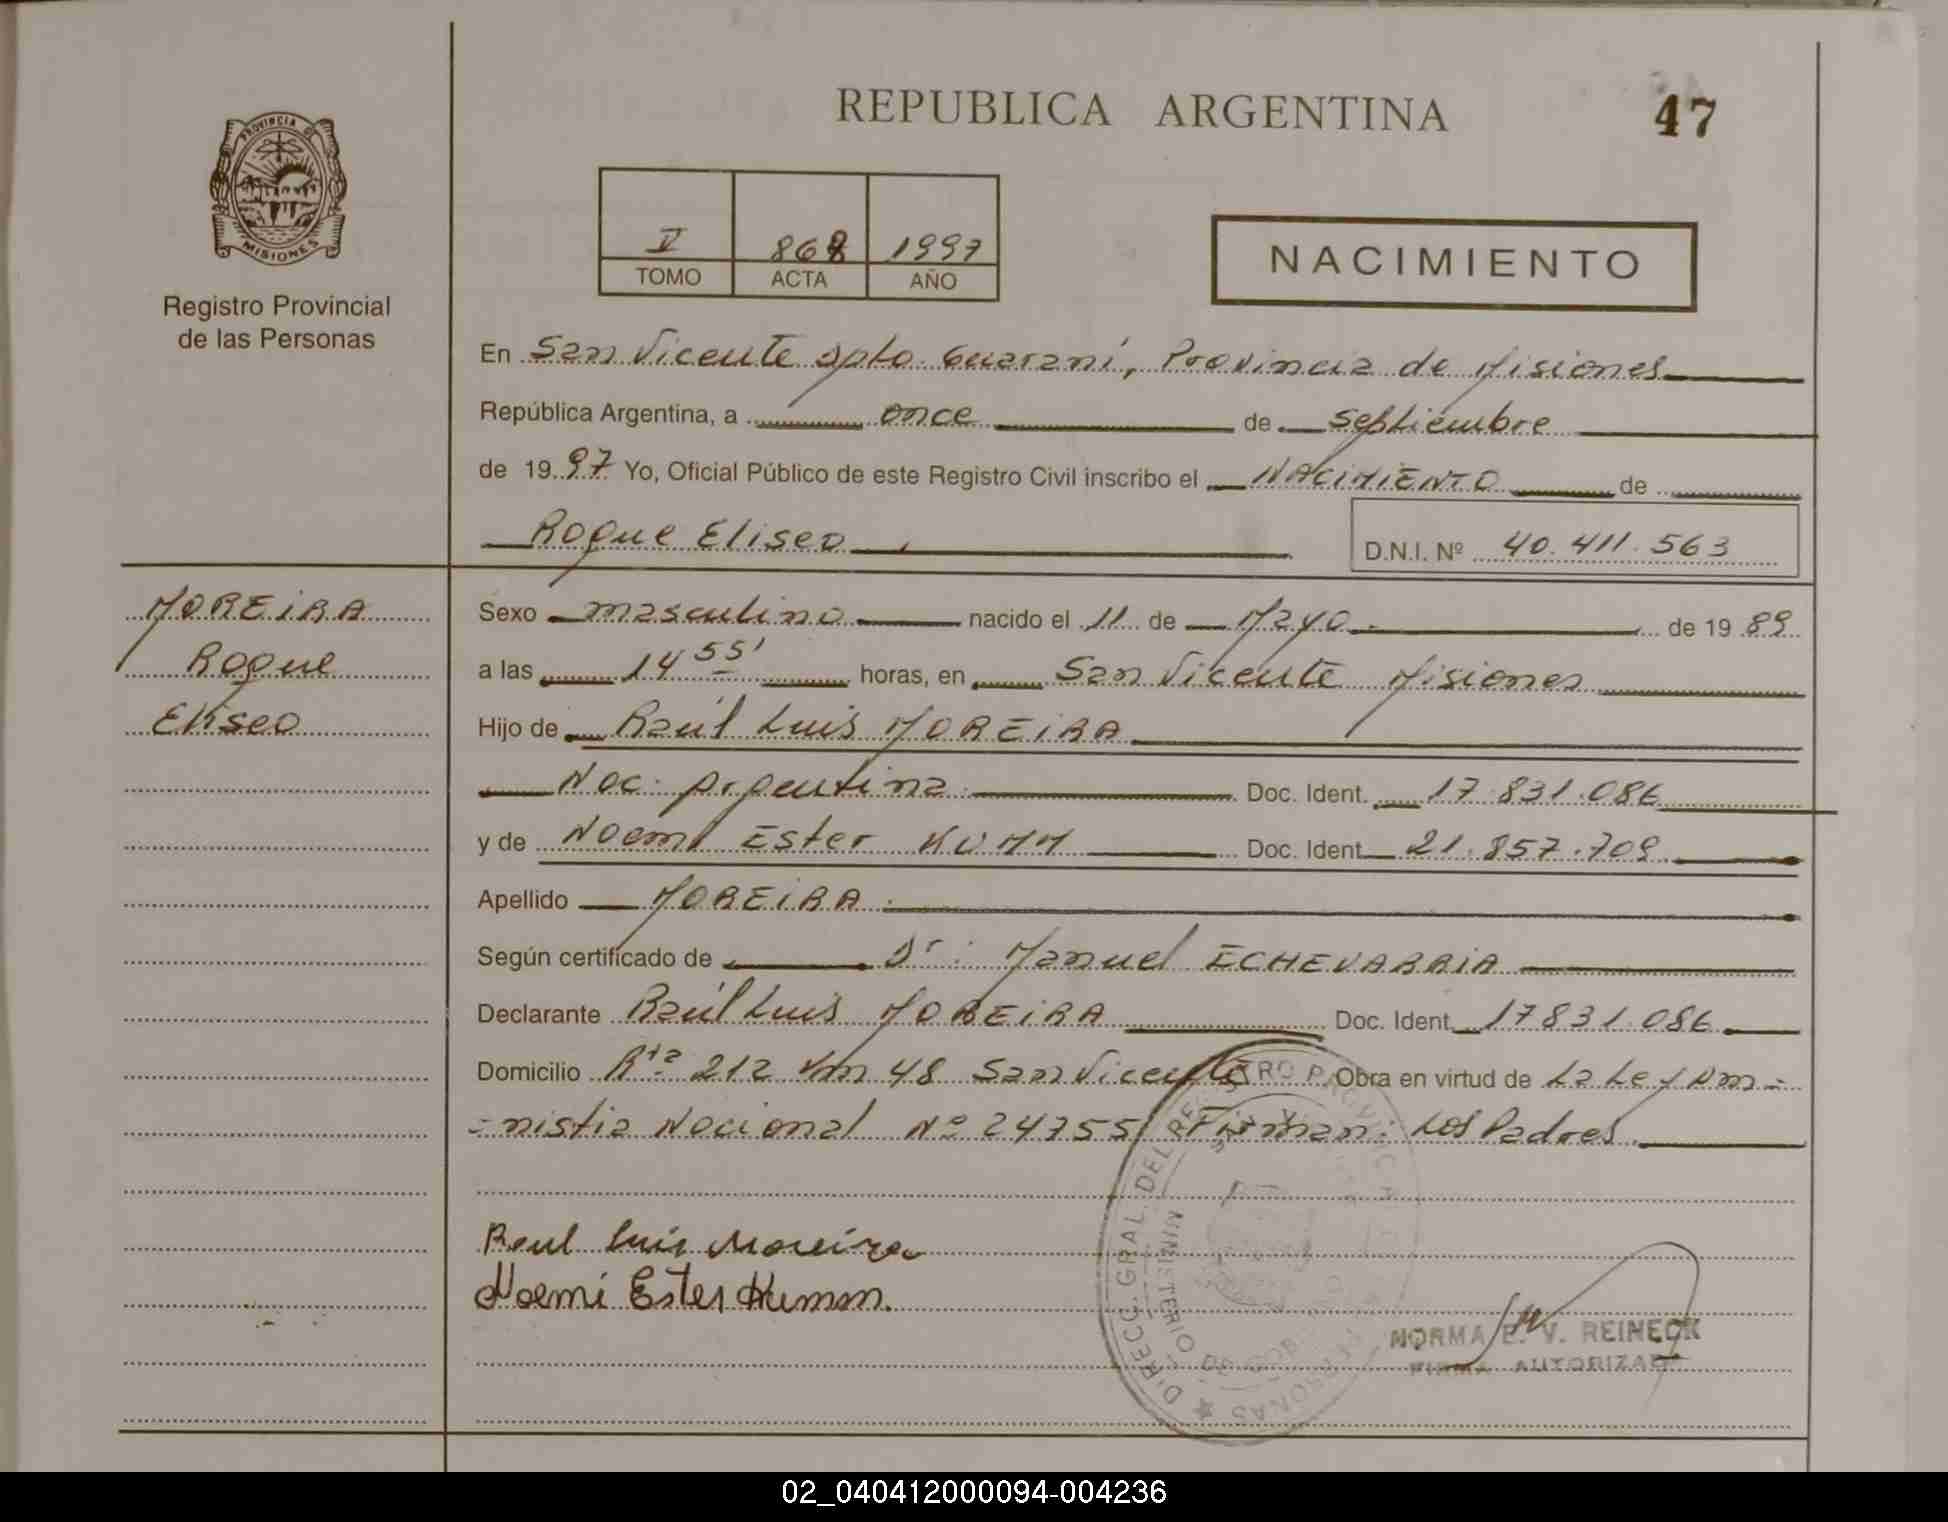 REPUBLICA ARGENTINA
47
PROVINCIA DE
MISIONES
Registro Provincial
de las Personas
V 868 1997
TOMO ACTA AÑO
NACIMIENTO
En San Vicente Dpto. Guaraní, Provincia de Misiones
República Argentina, a once de Septiembre
de 1997 Yo, Oficial Público de este Registro Civil inscribo el NACIMIENTO de
Roque Eliseo
D.N.I. Nº 40.411.563
MOREIRA
Roque
Eliseo
Sexo masculino nacido el 11 de Mayo de 1989
a las 14 55' horas, en San Vicente Misiones
Hijo de Raúl Luis MOREIRA
Nac. Argentina Doc. Ident. 17.831.086
y de Noemí Ester KUMM Doc. Ident. 21.857.709
Apellido MOREIRA
Según certificado de Dr. Manuel ECHEVARRIA
Declarante Raúl Luis MOREIRA Doc. Ident. 17831.086
Domicilio Rta 212 Km 48 San Vicente Obra en virtud de La Ley Am-
-nistia Nacional Nº 24755 Firman: Los Padres
Raul Luis Moreira
Noemi Ester Kumm.
DIRECC. GRAL. DEL REGISTRO PROVINCIAL PERSONAS
MINISTERIO DE GOB.
NORMA E. V. REINECK
FIRMA AUTORIZADA
02_040412000094-004236